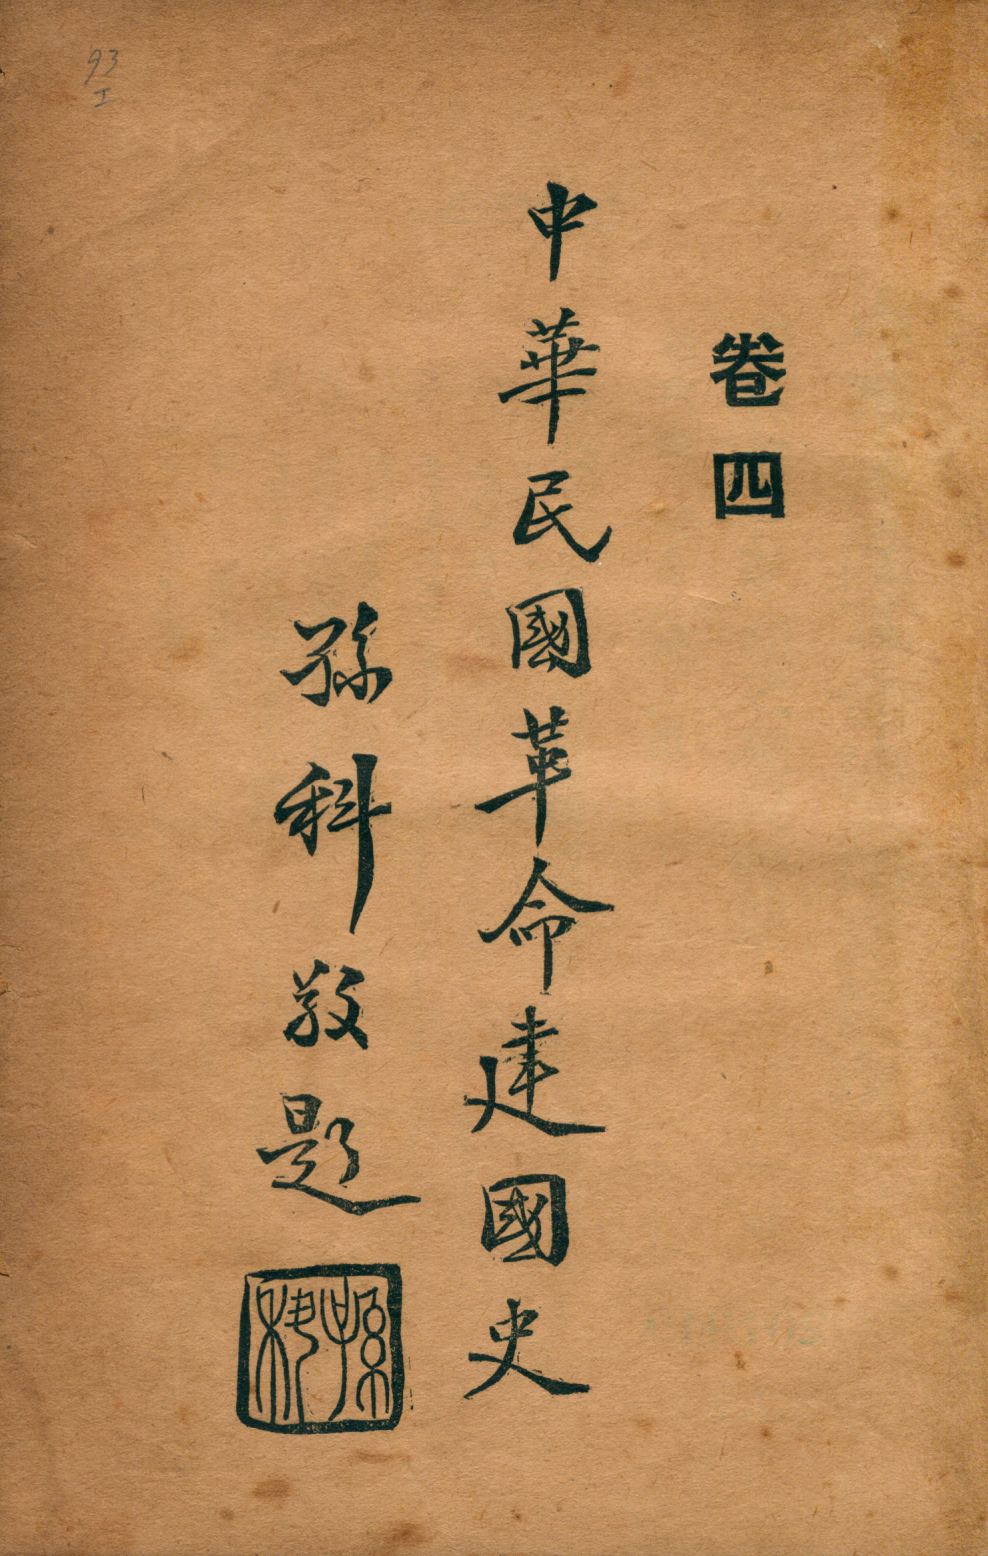 卷四
中華民國革命建國史
孫科敬題
孫科
93
I